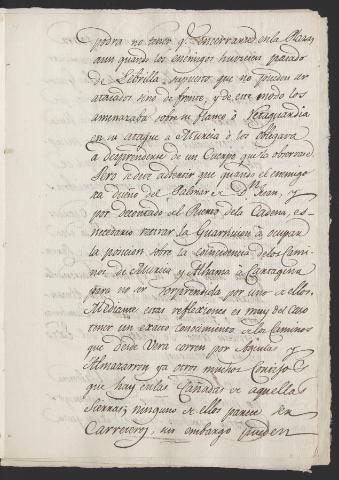 podra no tener qe. encerrarse en la Plaza,
aun quando los enemigos hubiesen pasado
de Librilla, supuesto que no pueden ser
atacados sino de frente, y de este modo los
amenazaba sobre su flanco ó Retaguardia
en su ataque a Murcia ó los obligava
à desprenderse de un Cuerpo que la observase.
Pero se deve advertir que quando el enemigo
sea dueño del Palmar de Dn. Juan, y
por decontado el Puerto de la Cadena, es
necesario retirar la Guarnicion à ocupar
la posicion sobre la coincidencia de los Cami-
nos de Murcia y Alhama à Cartagena
para no ser sorprendida por uno de ellos.
Mediante estas reflexiones es muy del caso
tener un exacto conocimiento de los Caminos
que desde Vera corren por Aguilas y
Almazarron ya otros muchos Consejos
que hay en las Cañadas de aquellas
Sierras; ninguno de ellos parece ser
Carretero, sin embargo pueden